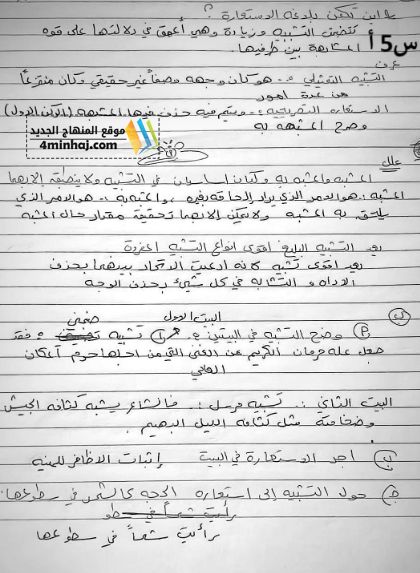 س5 أ
اين تكمن بلاغة الاستعارة ؟
تتضمن التشبيه وزيادة وهي أعمق في دلالتها على قوة
المشابهة بين طرفيها.
عرف
التشبيه التمثيلي :- هو كان وجهه وصفاً غير حقيقي وكان منتزعاً
من عدة امور
الاستعارة التصريحية :- ويتم فيه حذف فيها المشبه (الركن الاول)
وصرح المشبه به
موقع المنهاج الجديد
4minhaj.com
علل
المشبه والمشبه به ركنان اساسيان في التشبيه ولا ينعقد الا بهما
المشبه : هو الامر الذي يراد إلحاقه بغيره ، والمشبه به :- هو الامر الذي
يلحق به المشبه ولا الا بهما تحقيقة مقدار حال المشبه
يعد التشبيه البليغ اقوى انواع التشبيه المفردة
يعد اقوى تشبيه كانه ادعيت الاتحاد بينهما بحذف
الاداة و التشابه في كل شيء بحذف الوجه
البيت الاول ضمني
وضح التشبيه في البيتين :- تشبيه فقد
جعل علة حرمان الكريم من الغنى
العالي
البيت الثاني :- تشبيه مرسل :- فالشاعر يشبه كثافة الجيش
وضخامته مثل كثافة الليل البهيم
ب) اجر الاستعارة في البيت إثبات الاظافر للمنية
ج) حول التشبيه إلى استعارة الحجة كالشمس في سطوعها
رأيت شمساً في سطوعها